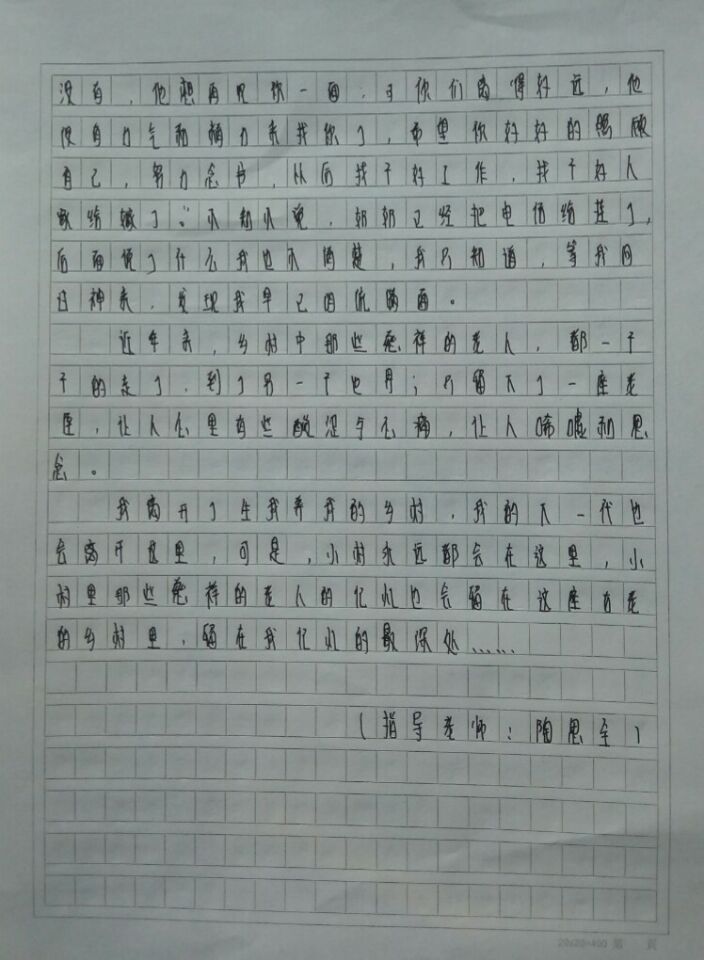 没有，他想再见你一面，可你们离得好远，他
没有力气和精力来找你了，希望你好好的照顾
自己，努力念书，从而找个好工作，找个好人
家给嫁了。”不知不觉，奶奶已经把电话给挂了，
后面说了什么我也不清楚，我只知道，等我回
过神来，发现我早已泪流满面。
近年来，乡村中那些慈祥的老人，都一个
个的走了，到了另一个世界；只留下了一座老
屋，让人心里有些酸涩与心痛，让人唏嘘和思
念。
我离开了生我养我的乡村，我的下一代也
会离开这里，可是，小村永远都会在这里，小
村里那些慈祥的老人的记忆也会留在这座古老
的乡村里，留在我记忆的最深处……
（指导老师：陶思至）
20x20=400 第 页